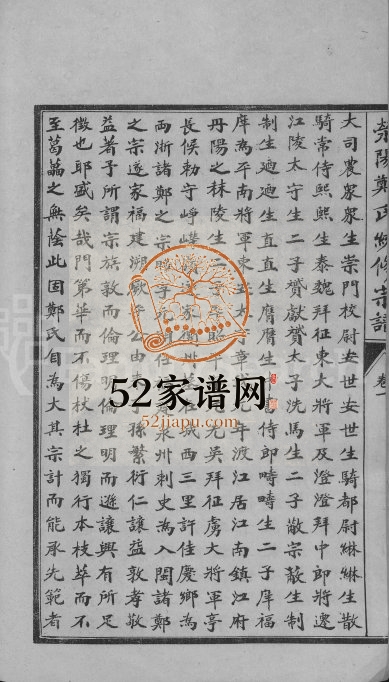 滎陽鄭氏續修宗譜 卷一
大司農衆衆生崇門校尉安世安世生騎都尉綝綝生散
騎常侍熙熙生泰魏拜征東大將軍及澄澄拜中郎將遷
江陵太守生二子賛獻賛太子洗馬生二子敵宗敵生制
制生廻廻生直直生膺膺生侍郎疇疇生二子庠福
庠為平南將軍東 年渡江居江南鎮江府
丹陽之林陵生 元吳拜征虜大將軍亭
長侯勅守崢 家衢州 城西三里許佳慶鄉為
兩浙諸鄭之宗 泉州刺史為入閩諸鄭
之宗遂家福建 公由 孫繁衍仁讓益敦孝敬
益著子所謂宗族敦而倫理明倫理明而遜讓興有所足
徵也耶盛矣哉門第華而不傷杕杜之獨行本枝萃而不
至葛藟之無蔭此固鄭氏目為大其宗計而能承先範者
52家谱网
52jiapu.com